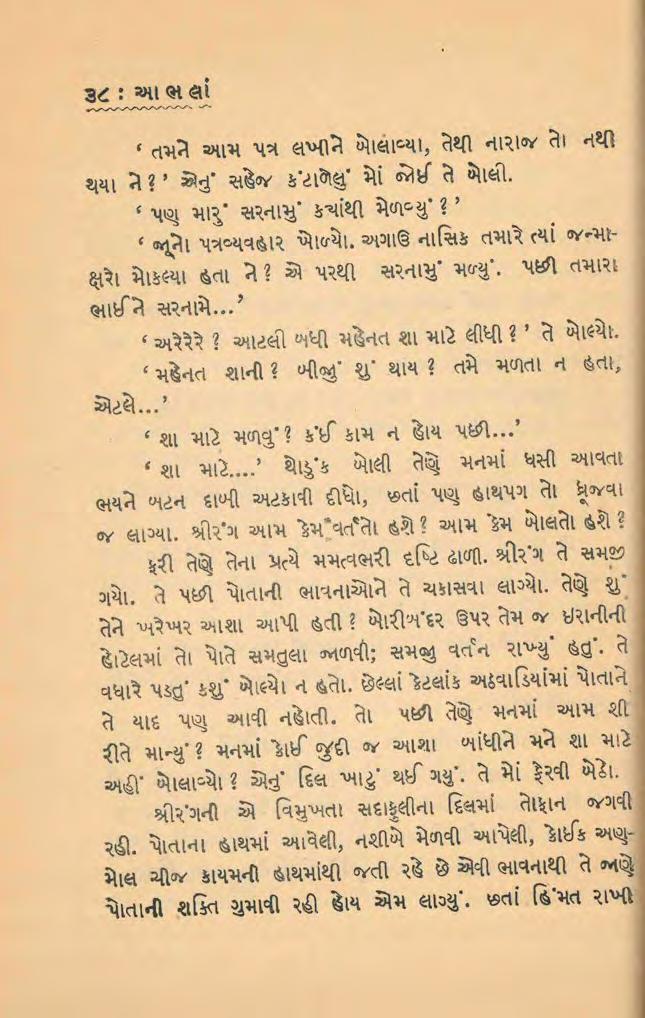 ૩૮ : આ ભ લાં
‘ તમને આમ પત્ર લખીને બોલાવ્યા, તેથી નારાજ તો નથી
થયા ને ? ’ એનું સહેજ કંટાળેલું મોં જોઈ તે બોલી.
‘ પણ મારું સરનામું ક્યાંથી મેળવ્યું ? ’
‘ જૂનો પત્રવ્યવહાર ખોળ્યો. અગાઉ નાસિક તમારે ત્યાં જન્મા-
ક્ષરો મોકલ્યા હતા ને ? એ પરથી સરનામું મળ્યું. પછી તમારા
ભાઈને સરનામે...’
‘ અરેરેરે ? આટલી બધી મહેનત શા માટે લીધી ? ’ તે બોલ્યો.
‘ મહેનત શાની ? બીજું શું થાય ? તમે મળતા ન હતા,
એટલે...’
‘ શા માટે મળવું ? કંઈ કામ ન હોય પછી...’
‘ શા માટે....’ થોડુંક બોલી તેણે મનમાં ધસી આવતા
ભયને બટન દાબી અટકાવી દીધો, છતાં પણ હાથપગ તો ધ્રૂજવા
જ લાગ્યા. શ્રીરંગ આમ કેમ વર્તતો હશે ? આમ કેમ બોલતો હશે ?
ફરી તેણે તેના પ્રત્યે મમત્વભરી દૃષ્ટિ ઢાળી. શ્રીરંગ તે સમજી
ગયો. તે પછી પોતાની ભાવનાઓને તે ચકાસવા લાગ્યો. તેણે શું
તેને ખરેખર આશા આપી હતી ? બોરીબંદર ઉપર તેમ જ ઇરાનીની
હોટેલમાં તો પોતે સમતુલા જાળવી; સમજી વર્તન રાખ્યું હતું. તે
વધારે પડતું કશું બોલ્યો ન હતો. છેલ્લાં કેટલાંક અઠવાડિયાંમાં પોતાને
તે યાદ પણ આવી નહોતી. તો પછી તેણે મનમાં આમ શી
રીતે માન્યું ? મનમાં કોઈ જુદી જ આશા બાંધીને મને શા માટે
અહીં બોલાવ્યો ? એનું દિલ ખાટું થઈ ગયું. તે મોં ફેરવી બેઠો.
શ્રીરંગની એ વિમુખતા સદાફુલીના દિલમાં તોફાન જગવી
રહી. પોતાના હાથમાં આવેલી, નશીબે મેળવી આપેલી, કોઈક અણ-
મોલ ચીજ કાયમની હાથમાંથી જતી રહે છે એવી ભાવનાથી તે જાણે
પોતાની શક્તિ ગુમાવી રહી હોય એમ લાગ્યું. છતાં હિંમત રાખી